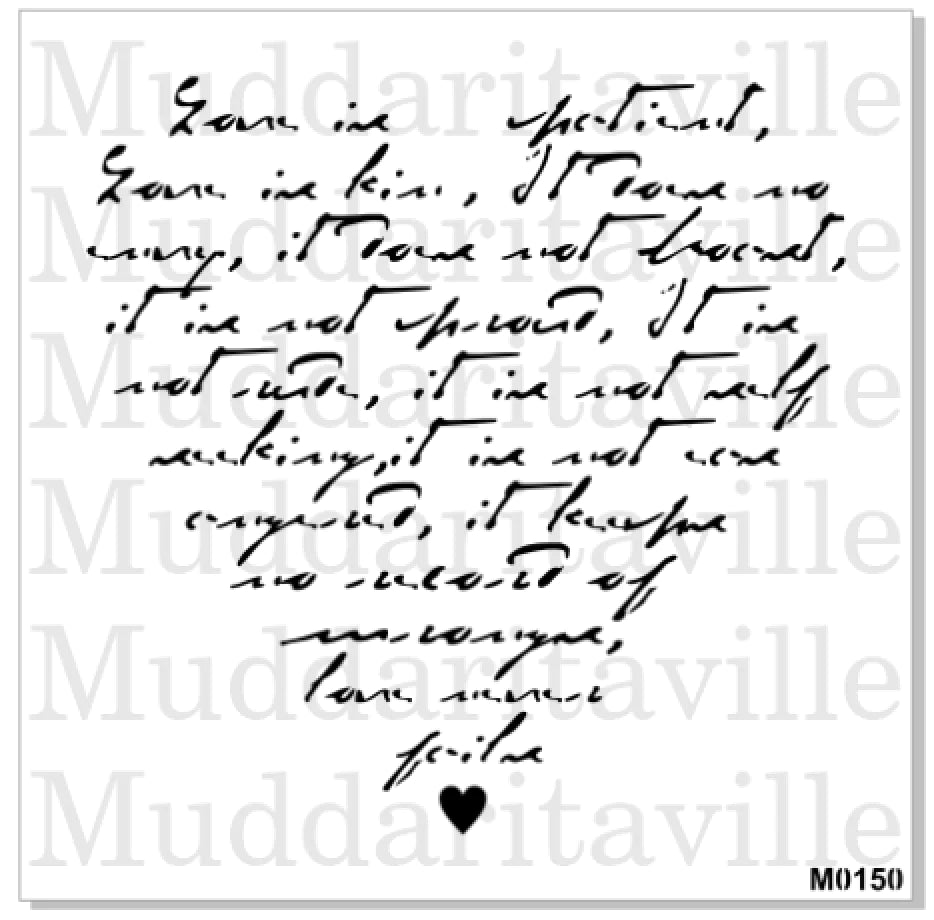 Muddaritaville
Love is patient,
Love is kin, It does no
Muddaritaville
envy, it does not broast,
Muddaritaville
it is not proud, It is
not rude, it is not self
seeking,it is not easa
Muddaritaville
angerd, it keeps
no record of
Muddaritaville
wrongs,
love never
fails
Muddaritaville
M0150